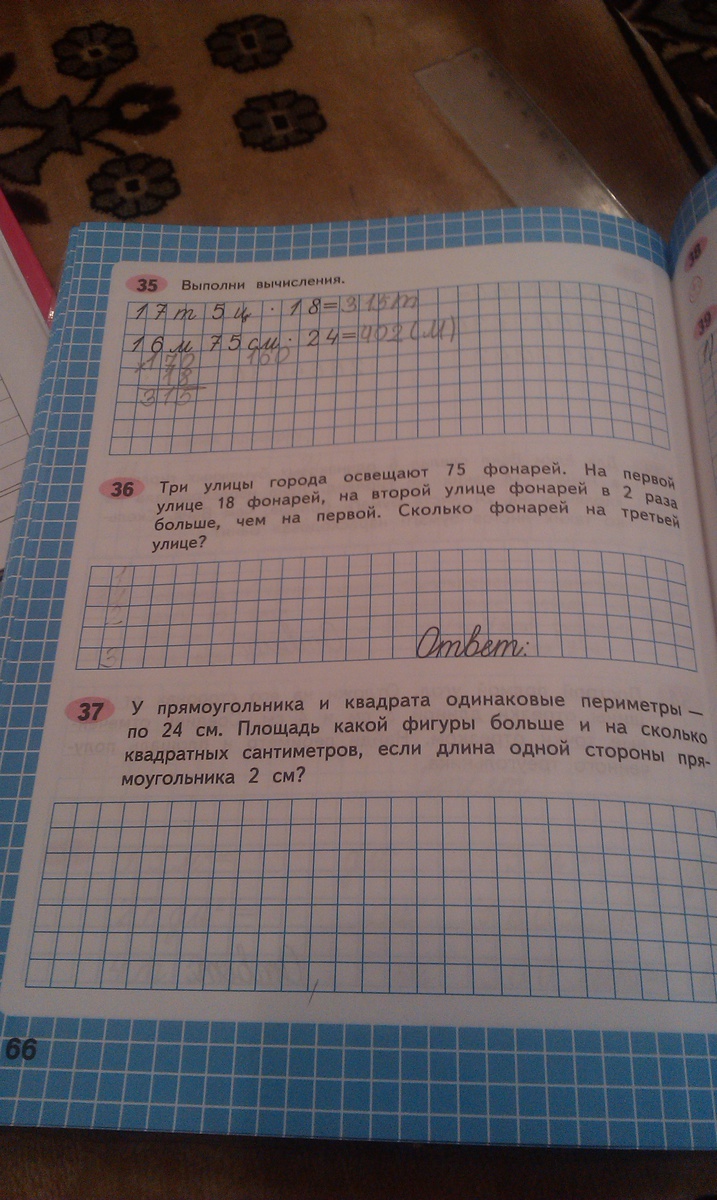 35 Выполни вычисления.
17 т 5 ц · 18=315т
16 м 75 см · 24=402(м)
18
315
36 Три улицы города освещают 75 фонарей. На первой
улице 18 фонарей, на второй улице фонарей в 2 раза
больше, чем на первой. Сколько фонарей на третьей
улице?
1
2
3
Ответ:
37 У прямоугольника и квадрата одинаковые периметры —
по 24 см. Площадь какой фигуры больше и на сколько
квадратных сантиметров, если длина одной стороны пря-
моугольника 2 см?
66
38
39